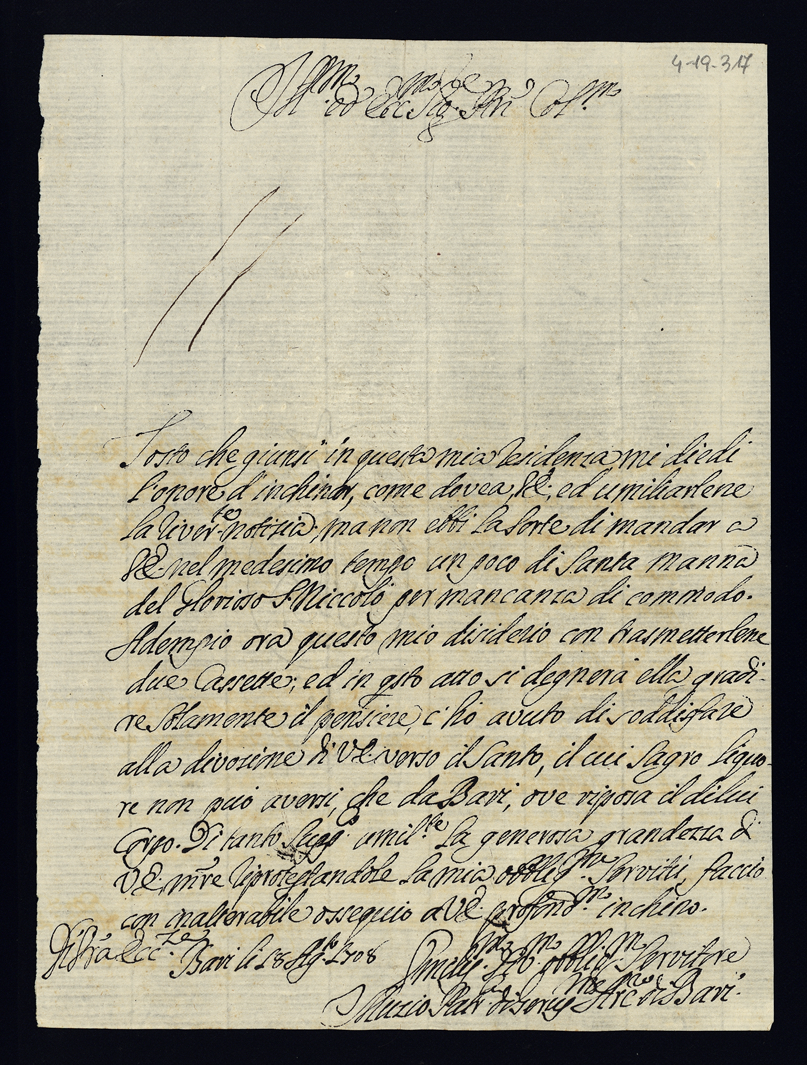 4-19-317
Ill.mo ed Ecc.mo Sig.re Pn̄e Col.mo
Tosto che giunsi in questa mia residenza mi diedi
l'onore d'inchinar, come dovea, VE:, ed umiliarlene
la river.te notizia; ma non ebbi la sorte di mandar a
VE: nel medesimo tempo un poco di Santa manna
del Glorioso S Niccolò per mancanza di commodo.
Adempio ora questo mio disiderio con trasmetterlene
due Cassette; ed in q̄sto atto si degnerà ella gradi-
re solamente il pensiere, c'ho avuto di soddisfare
alla divozione di VE verso il Santo, il cui sagro liquo-
re non può aversi, che da Bari, ove riposa il di lui
Corpo. Di tanto supp.o umil.te la generosa grandezza di
VE: m̄re riprotestandole la mia obblig.ma Servitù, faccio
con inalterabile ossequio a VE: profond.mo inchino.
Di V̄ra Ecc.za
Bari li 18 Ag.to 1708
Umiliss.mo Dev.mo obblig.mo Servitore
Muzio Arc.o di Bari